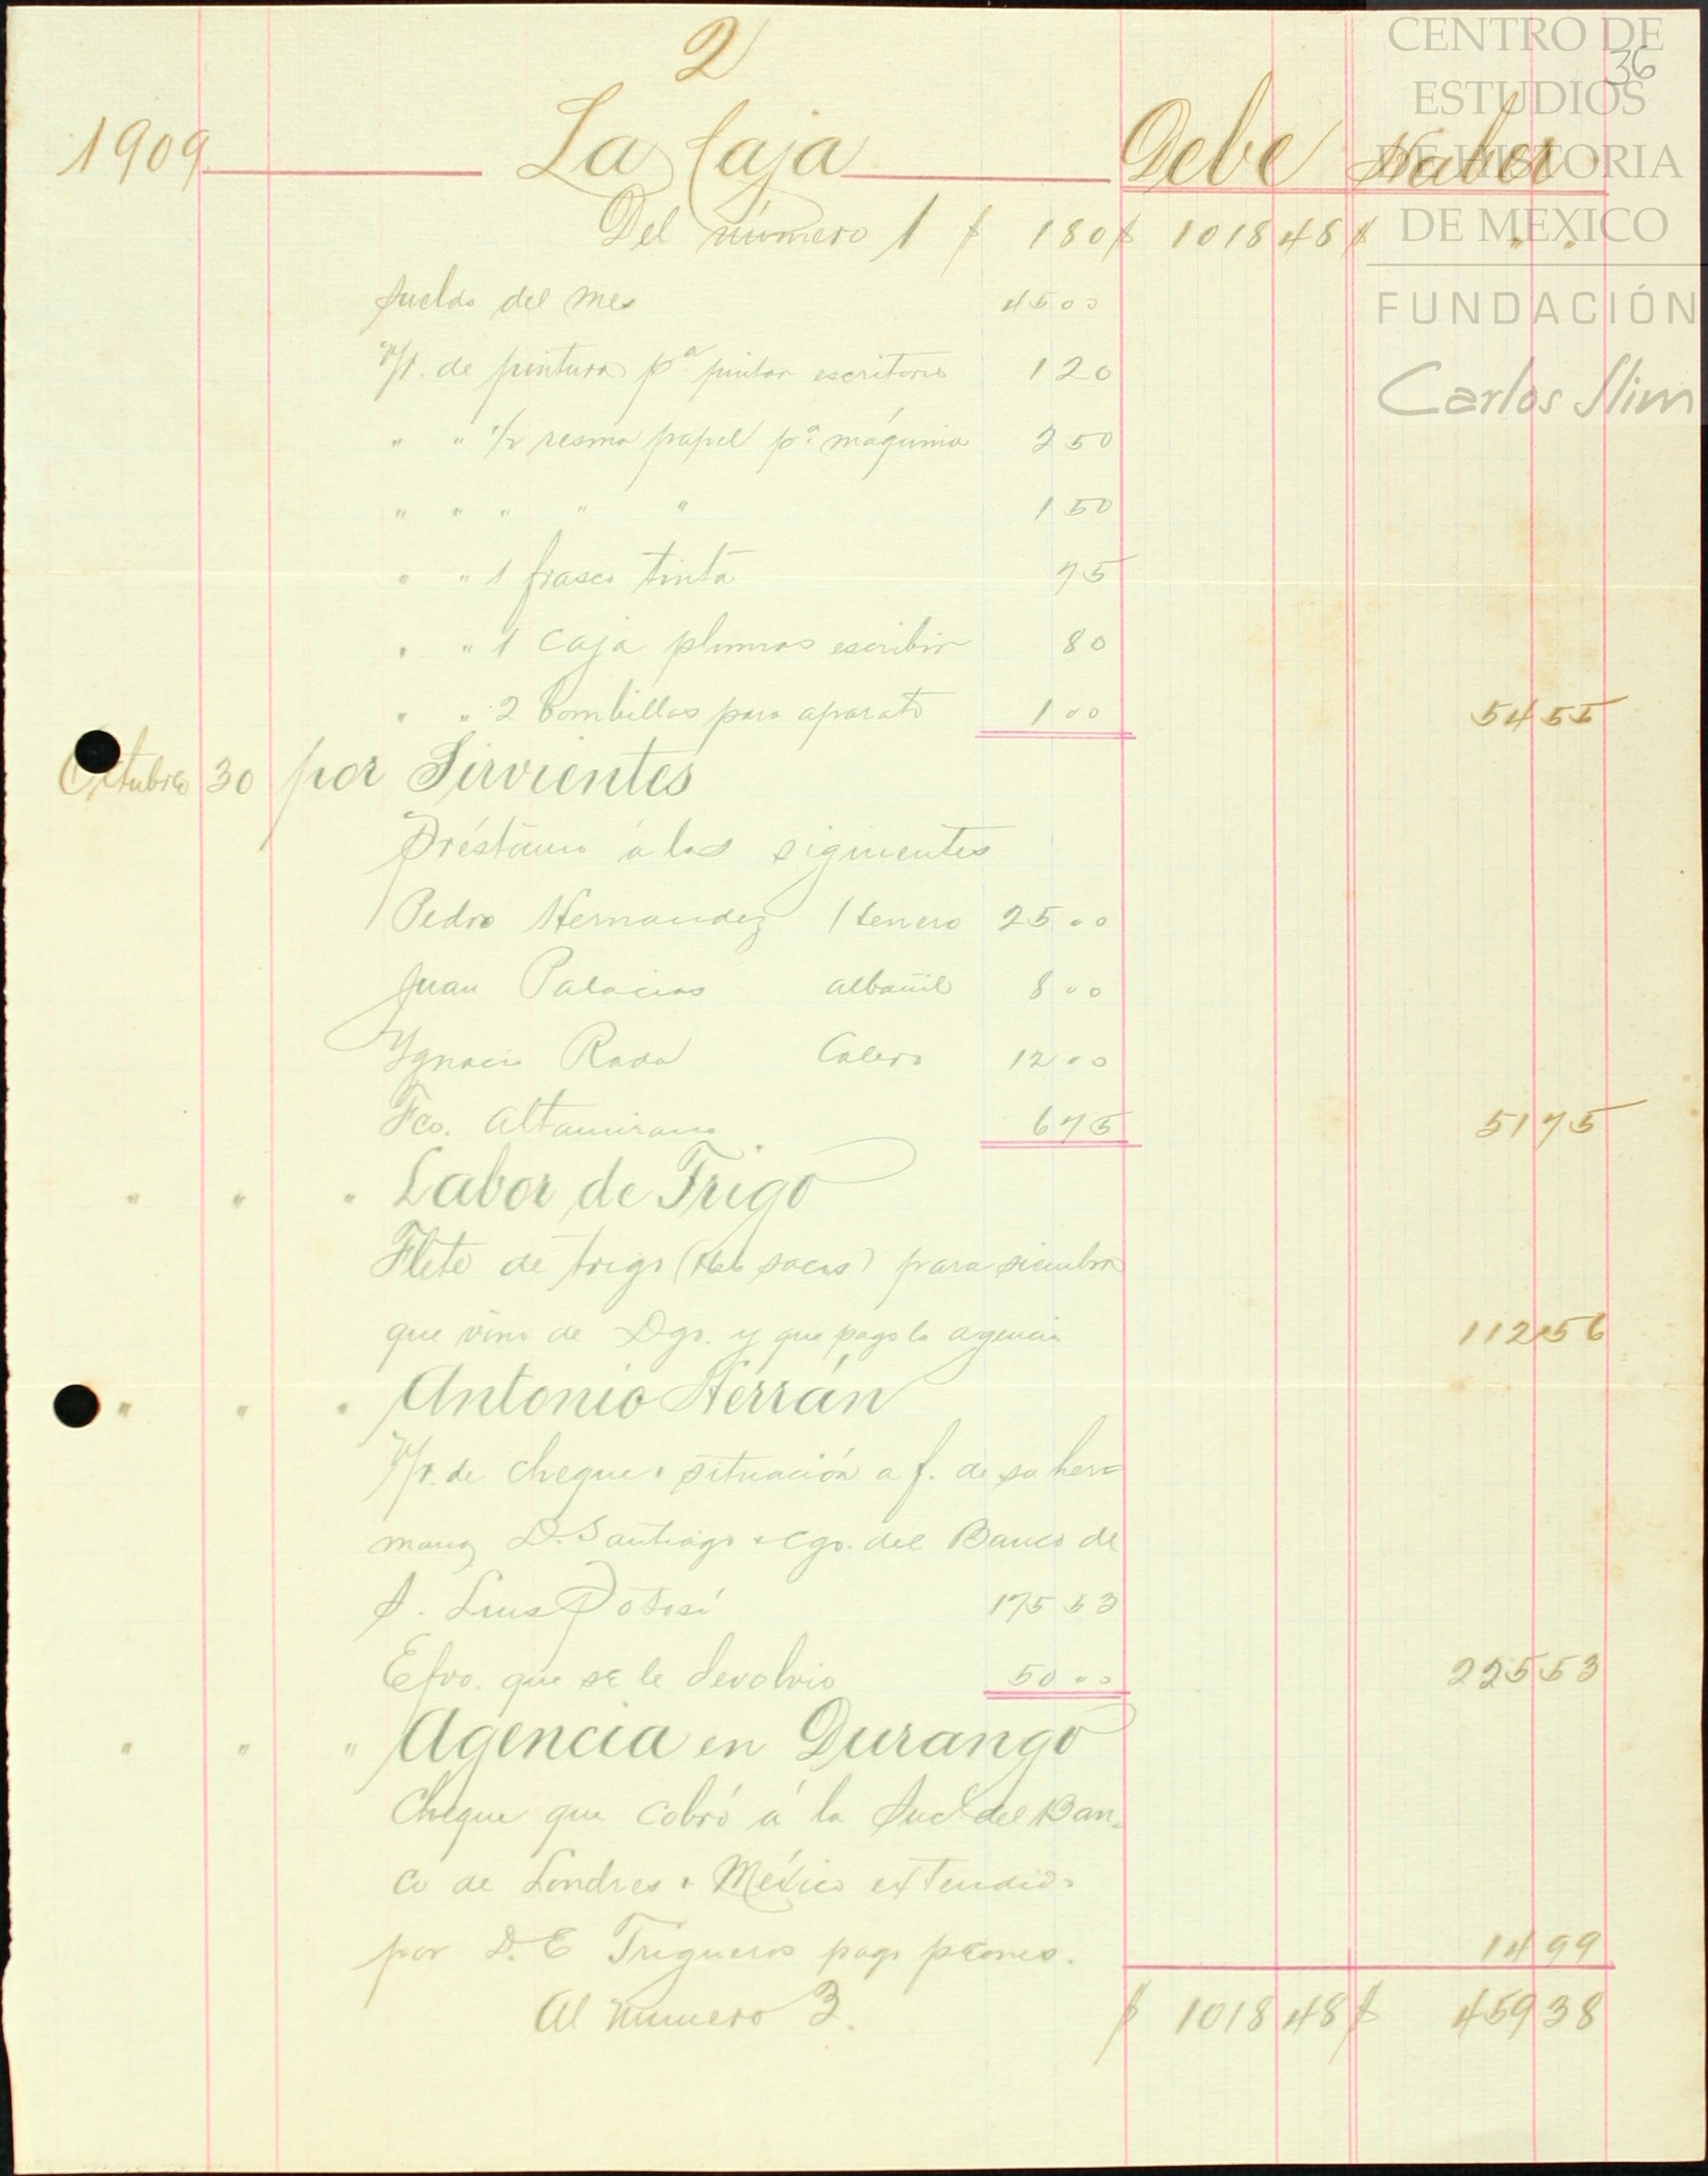 2
CENTRO DE
36
ESTUDIOS
DE HISTORIA
DE MEXICO
FUNDACIÓN
Carlos Slim
1909 La Caja Debe Haber
Del número 1 $ 180 $ 1018 48 $ " "
Sueldo del mes 45 00
V/r. de pintura pª pintar escritorio 1 20
" " 1/2 resma papel pª máquina 2 50
" " " " " 1 50
" " 1 frasco tinta 75
" " 1 Caja plumas escribir 80
" " 2 bombillas para aparato 1 00 54 55
Octubre 30 por Sirvientes
Préstamo á los siguientes
Pedro Hernandez 25 00
Juan Palacios albañil 8 00
Ygnacio Rada Calero 12 00
Fco. Altamirano 6 75 51 75
" " " Labor de Trigo
Flete de trigo (166 sacos) para siembra
que vino de Dgo. y que pago la agencia 112 56
" " " Antonio Herrán
V/r. de cheque situación a f. de su her=
mano D. Santiago cgo. del Banco de
S. Luis Potosí 175 53
Efvo. que se le devolvio 50 00 225 53
" " " Agencia en Durango
Cheque que cobró á la Suc. del Ban=
co de Londres y México extendido
por D. E Trigueros pago peones. 14 99
Al numero 3. $ 1018 48 $ 459 38